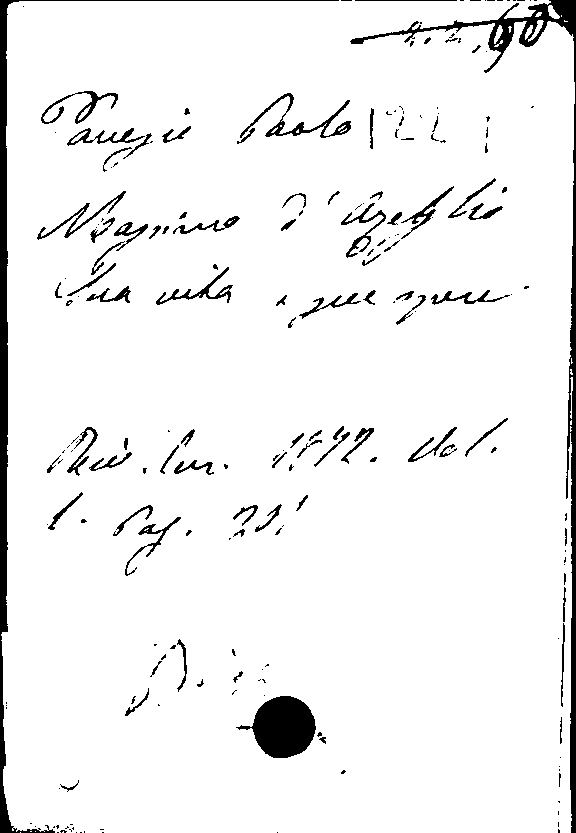 2.2.60
Pavesie Paolo 122
Massimo d'Azeglio
Sua vita e sue opere.
Riv. Eur. 1872. Vol.
1. Pag. 201